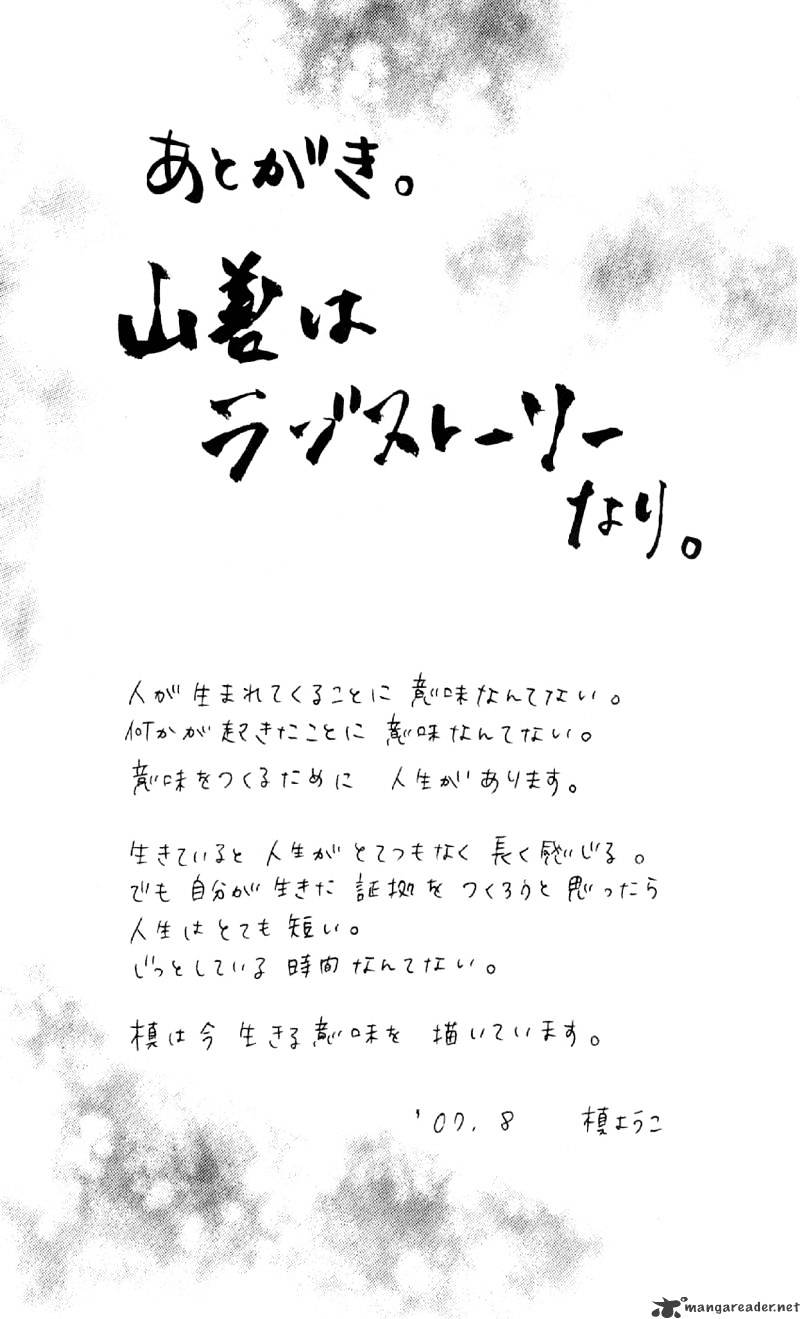 あとがき。
山善は
ラヴストーリー
なり。
人が生まれてくることに 意味なんてない。
何かが起きたことに 意味なんてない。
意味をつくるために 人生があります。
生きていると 人生がとてつもなく 長く感じる。
でも 自分が生きた 証拠を つくろうと思ったら
人生はとても 短い。
じっとしている 時間なんてない。
槙は今 生きる意味を 描いています。
'07. 8 槙ようこ
mangareader.net